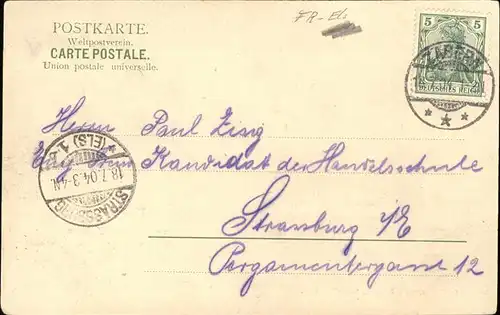 POSTKARTE.
Weltpostverein.
CARTE POSTALE.
Union postale universelle.
FR-Els
5 5
DEUTSCHES REICH
ZABERN
Herrn Paul
Kandidat der Handelsschule
(ELS) 1
18.7.04.3-4N.
STRASSBURG
Strassburg i/E
Pergamentergasse 12